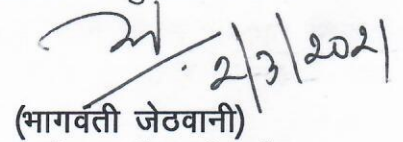 2/3/2021
(भागवंती जेठवानी)